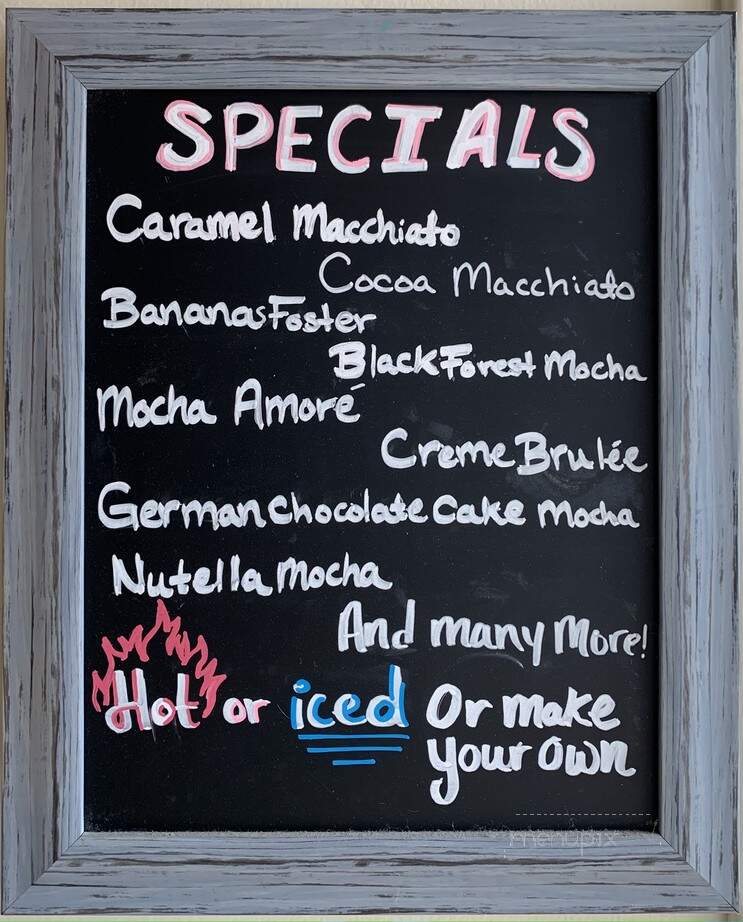 SPECIALS
Caramel Macchiato
Cocoa Macchiato
Bananas Foster
Black Forest Mocha
Mocha Amoré
Creme Brulée
German Chocolate Cake Mocha
Nutella Mocha
And many More!
Hot or iced Or make
your own
menupix